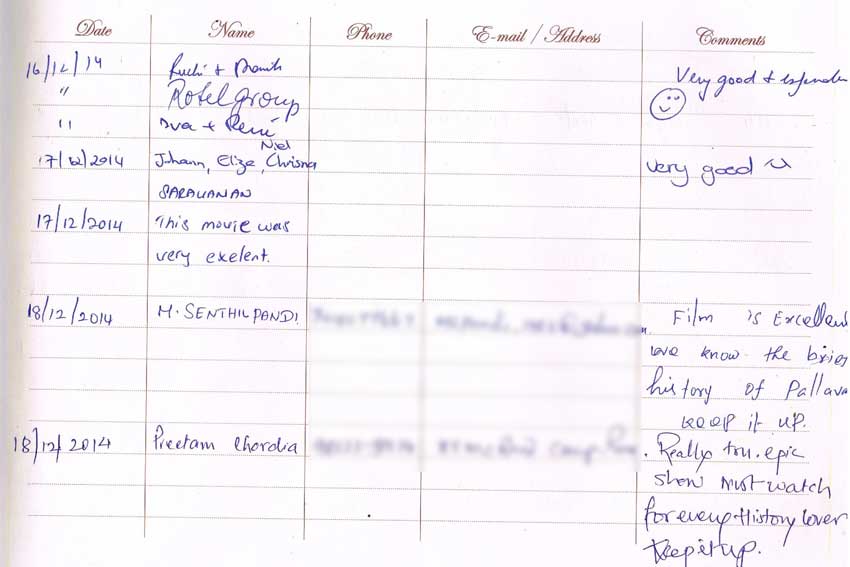 Date Name Phone E-mail / Address Comments
16/12/14 Ruchi + Very good +
" Rotel group
" + René
Niel
17/12/2014 Johann, Elize, Chrisna very good
SARAVANAN
17/12/2014 This movie was
very exelent.
18/12/2014 M. SENTHILPANDI Film is Excellent
we know the brief
history of Pallava
keep it up.
18/12/2014 Preetam Chordia Really tru. epic
show must watch
for every History lover
keep it up.